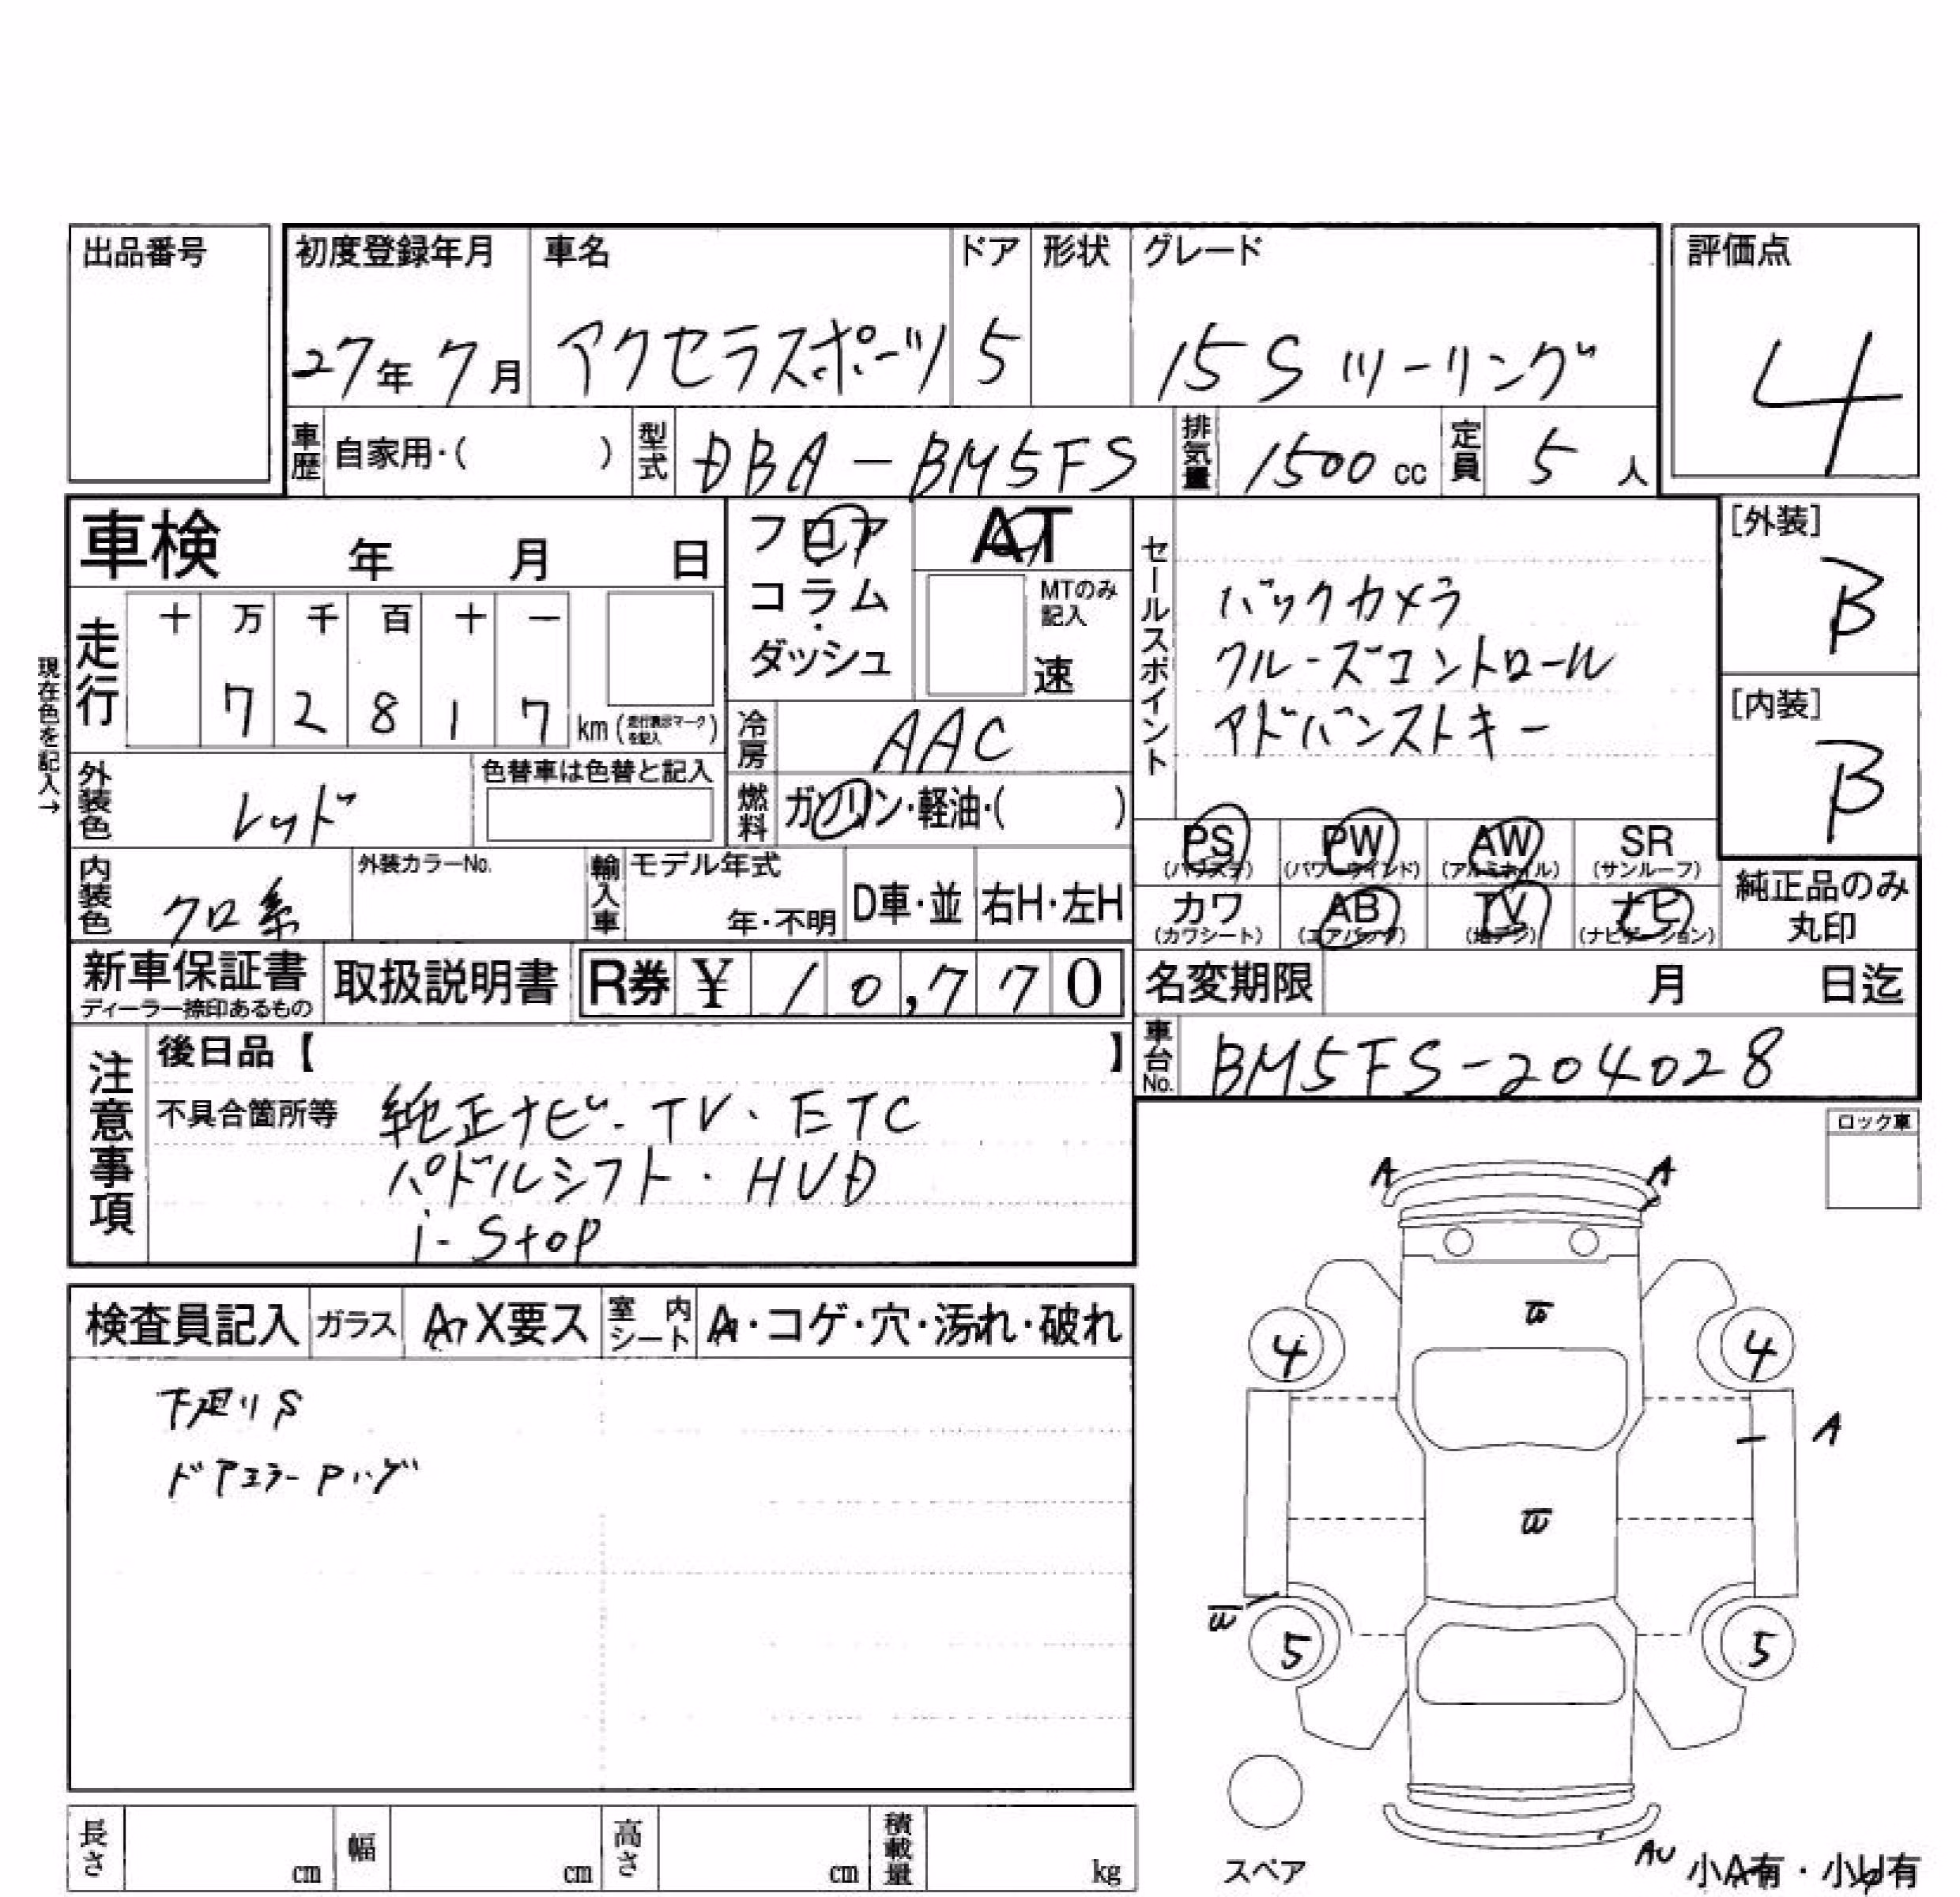 出品番号
初度登録年月 車名 ドア 形状 グレード 評価点
27年 7月 アクセラスポーツ 5 15S ツーリング 4
車歴 自家用・( ) 型式 DBA-BM5FS 排気量 1500 cc 定員 5 人
車検 年 月 日
フロア
コラム・
ダッシュ
AT
MTのみ記入
速
現在色を記入→
走行 十 万 千 百 十 一
7 2 8 1 7 km (走行表示マークを記入)
冷房 AAC
外装色 レッド
色替車は色替と記入
燃料 ガソリン・軽油・( )
セールスポイント
バックカメラ
クルーズコントロール
アドバンストキー
[外装]
B
[内装]
B
PS (パワステ) PW (パワーウインド) AW (アルミホイル) SR (サンルーフ)
カワ (カワシート) AB (エアバッグ) TV (地デジ) ナビ (ナビゲーション)
純正品のみ
丸印
内装色 クロ系
外装カラーNo.
輸入車 モデル年式
年・不明
D車・並 右H・左H
新車保証書
ディーラー捺印あるもの
取扱説明書
R券 ¥ 10,770
名変期限 月 日迄
車台No. BM5FS-204028
注意事項
後日品【 】
不具合箇所等 純正ナビ・TV・ETC
パドルシフト・HUD
i-stop
ロック車
検査員記入 ガラス A・X要ス 室内シート A・コゲ・穴・汚れ・破れ
下廻りS
ドアミラーPハゲ
A A
4 4
A
5 5
スペア
AU 小A有・小U有
長さ cm 幅 cm 高さ cm 積載量 kg